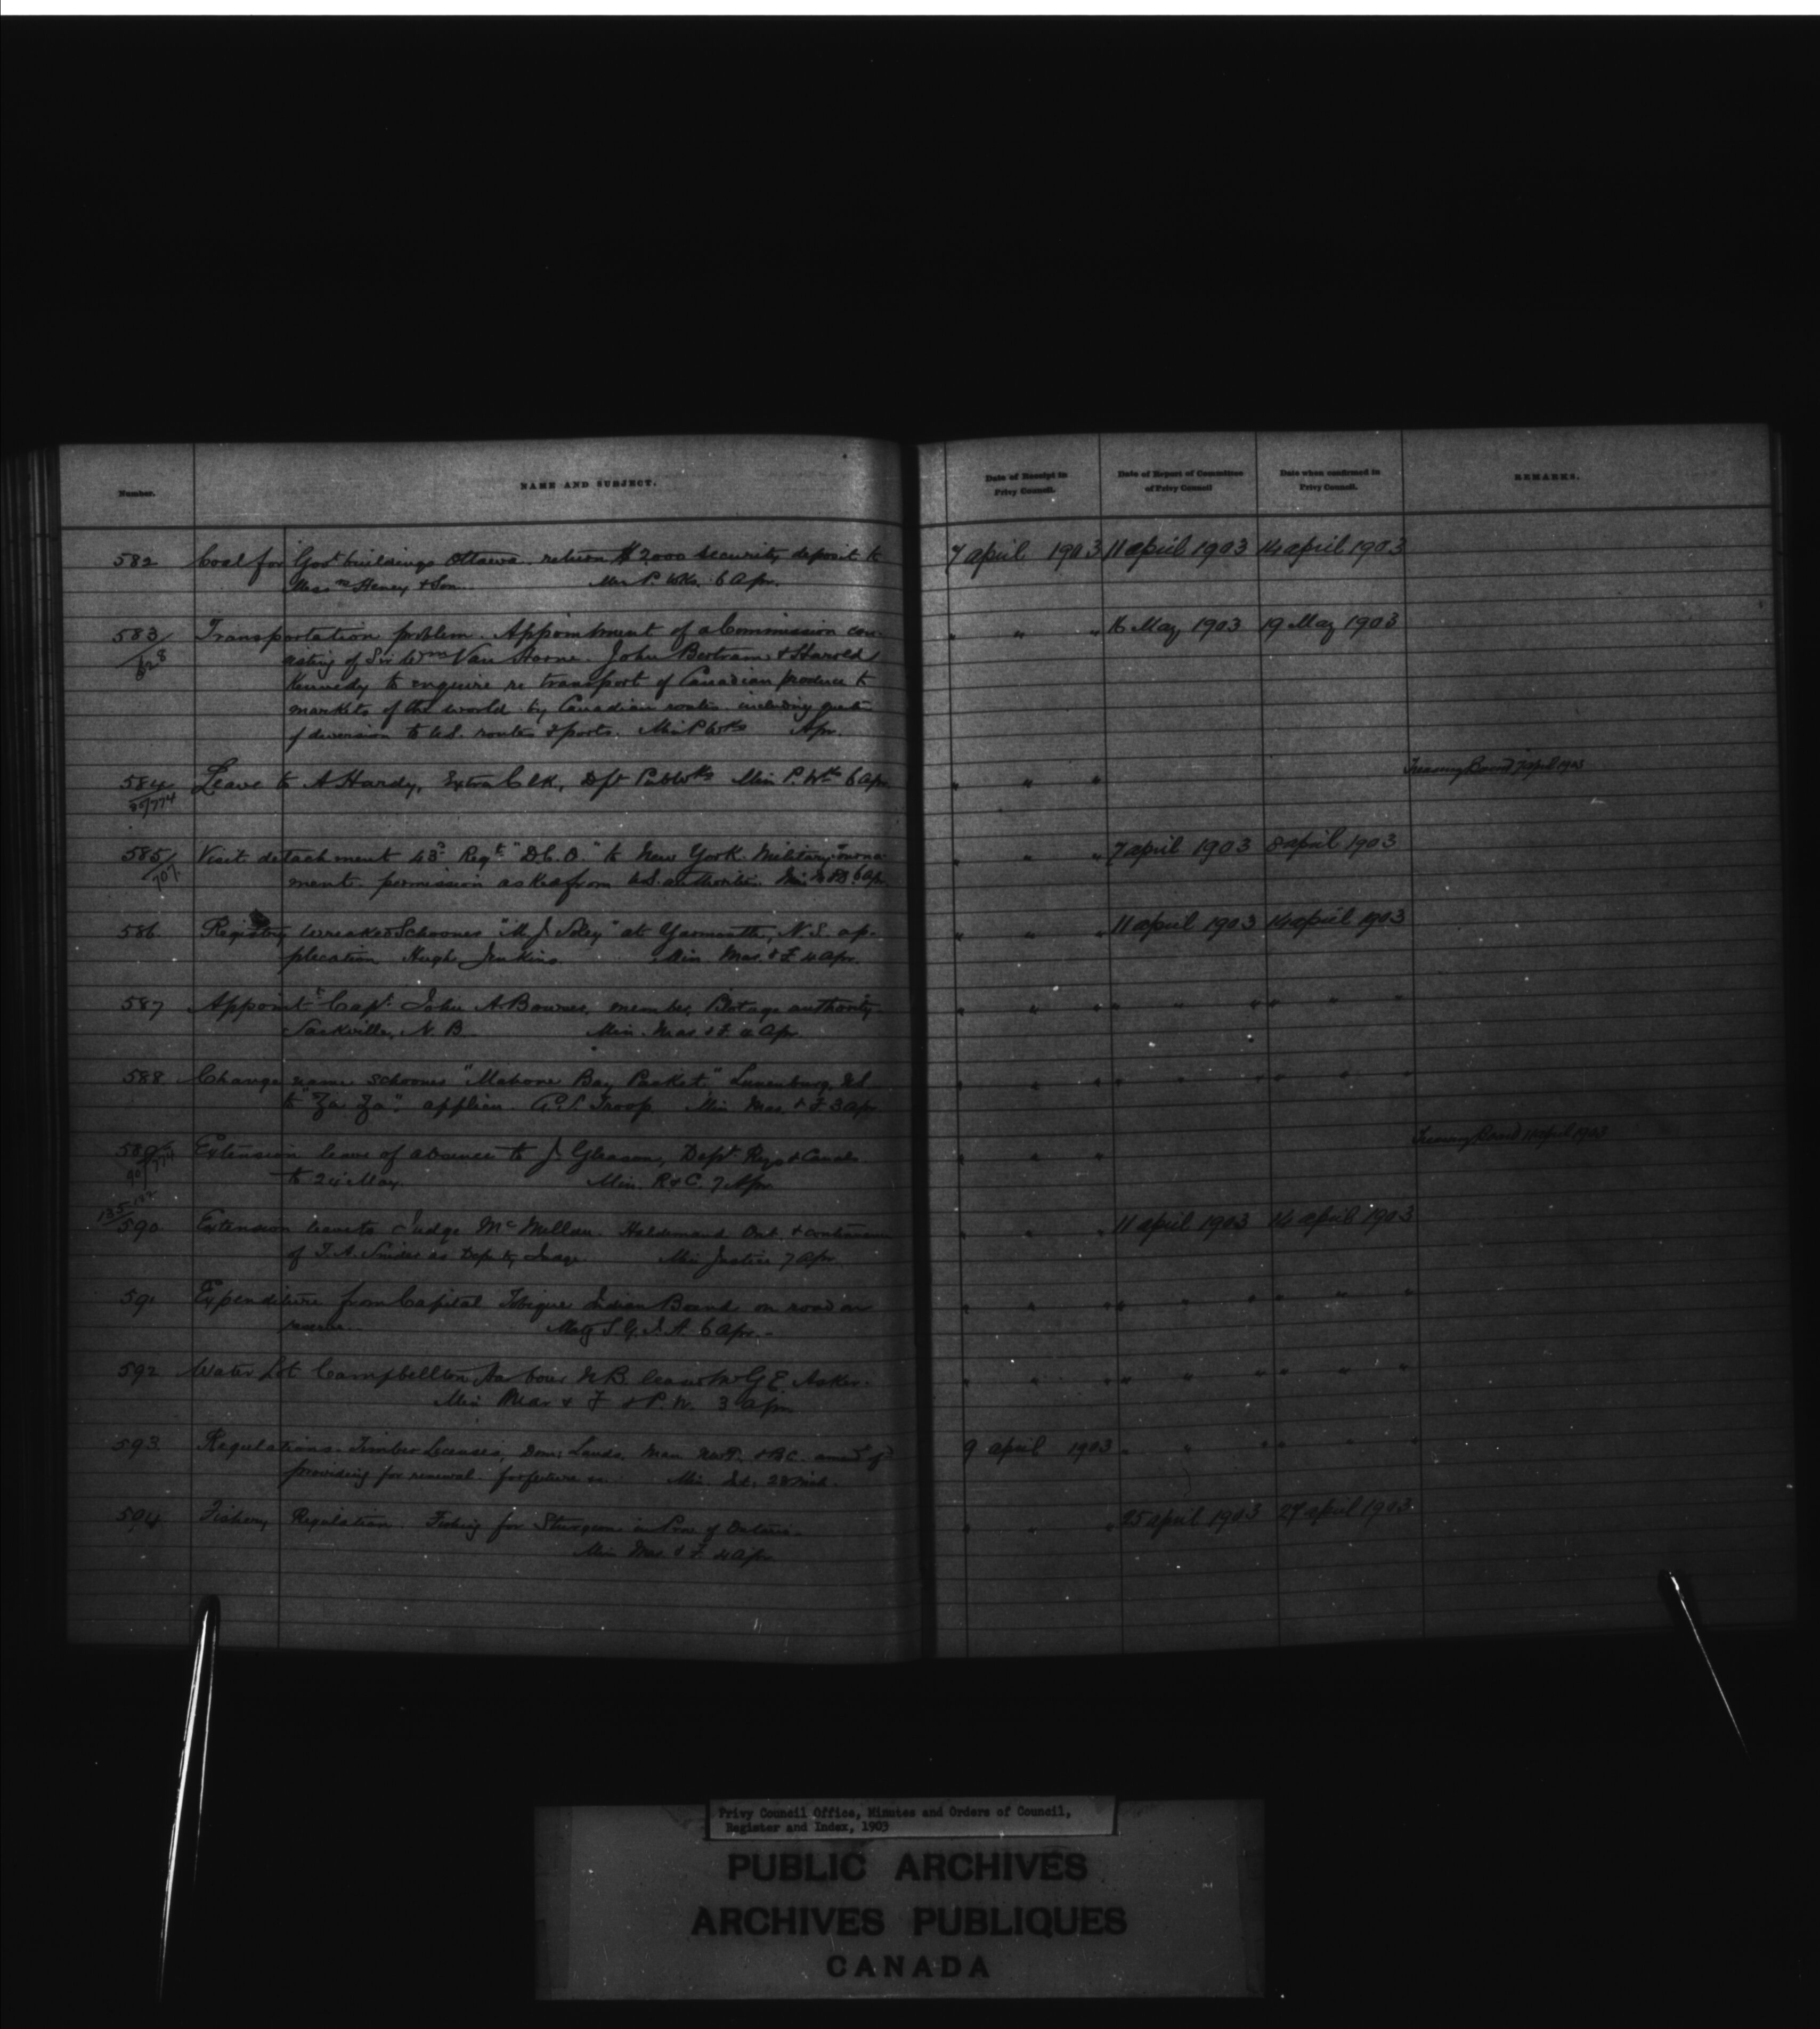 Number.
NAME AND SUBJECT.
Date of Receipt in
Privy Council.
Date of Report of Committee
of Privy Council
Date when confirmed in
Privy Council.
REMARKS.
582 Coal for Govt buildings Ottawa. return $2,000 security deposit to 7 april 1903 11 april 1903 14 april 1903
Messrs Heney & Son. Min P. Wks. 6 Apr.
583/628 Transportation problem. Appointment of a Commission con- " " " 16 May 1903 19 May 1903
sisting of Sir Wm Van Horne. John Bertram & Harold
Kennedy to enquire re transport of Canadian produce to
markets of the world by Canadian routes including
of diversion to U.S. routes & ports. Min P Wks Apr.
584 Leave to A Hardy, Extra Clk, Dpt Pub Wks Min P. Wks 6 Apr. " " " Treasury Board 7 april 1903
585/707 Visit detachment 43rd Regt "D.C.O." to New York Military Tourna- " " " 7 april 1903 8 april 1903
ment. permission asked from U.S. authorities. 6 Apr.
586 Registry wrecked Schooner "M J Soley" at Yarmouth, N.S. ap- " " " 11 april 1903 14 april 1903
plication Hugh Jenkins. Min Mar. & F. 4 Apr.
587 Appointt Capt. John A Bownes, member, Pilotage authority " " " " " " " " "
Sackville, N.B. Min. Mar & F. Apr.
588 Change name schooner "Mahone Bay Packet" Lunenburg, NS " " " " " " " " "
to "Za Za". applicn. Troop Min Mar. & F 3 Apr
589 Extension leave of absence to J Gleason, Dept Rys & Canals " " " Treasury Board april 1903
to 24 May. Min. R & C. 7 Apr.
590 Extension leave to Judge McMillan. Haldimand Ont. & continuance " " " 11 april 1903 14 april 1903
of T.A. Snider as Deputy Judge. Min Justice 7 Apr.
591 Expenditure from Capital Tobique Indian Band on road on " " " " " " " " "
reserve. S.G.I.A. 6 Apr.
592 Water Lot Campbellton Harbour N.B. lease to G E. Asker. " " " " " " " " "
Min Mar & F & P.W. 3 Apr.
593 Regulations. Timber Licenses, Dom: Lands. Man NWT. & BC. 9 april 1903 " " " " " "
providing for renewal. forfeiture &c. Min Int. 28 Mch.
594 Fishery Regulation. Fishing for Sturgeon in Prov of Ontario. " " " 25 april 1903 27 april 1903
Min Mar. & F. 4 Apr
Privy Council Office, Minutes and Orders of Council,
Register and Index, 1903
PUBLIC ARCHIVES
ARCHIVES PUBLIQUES
CANADA